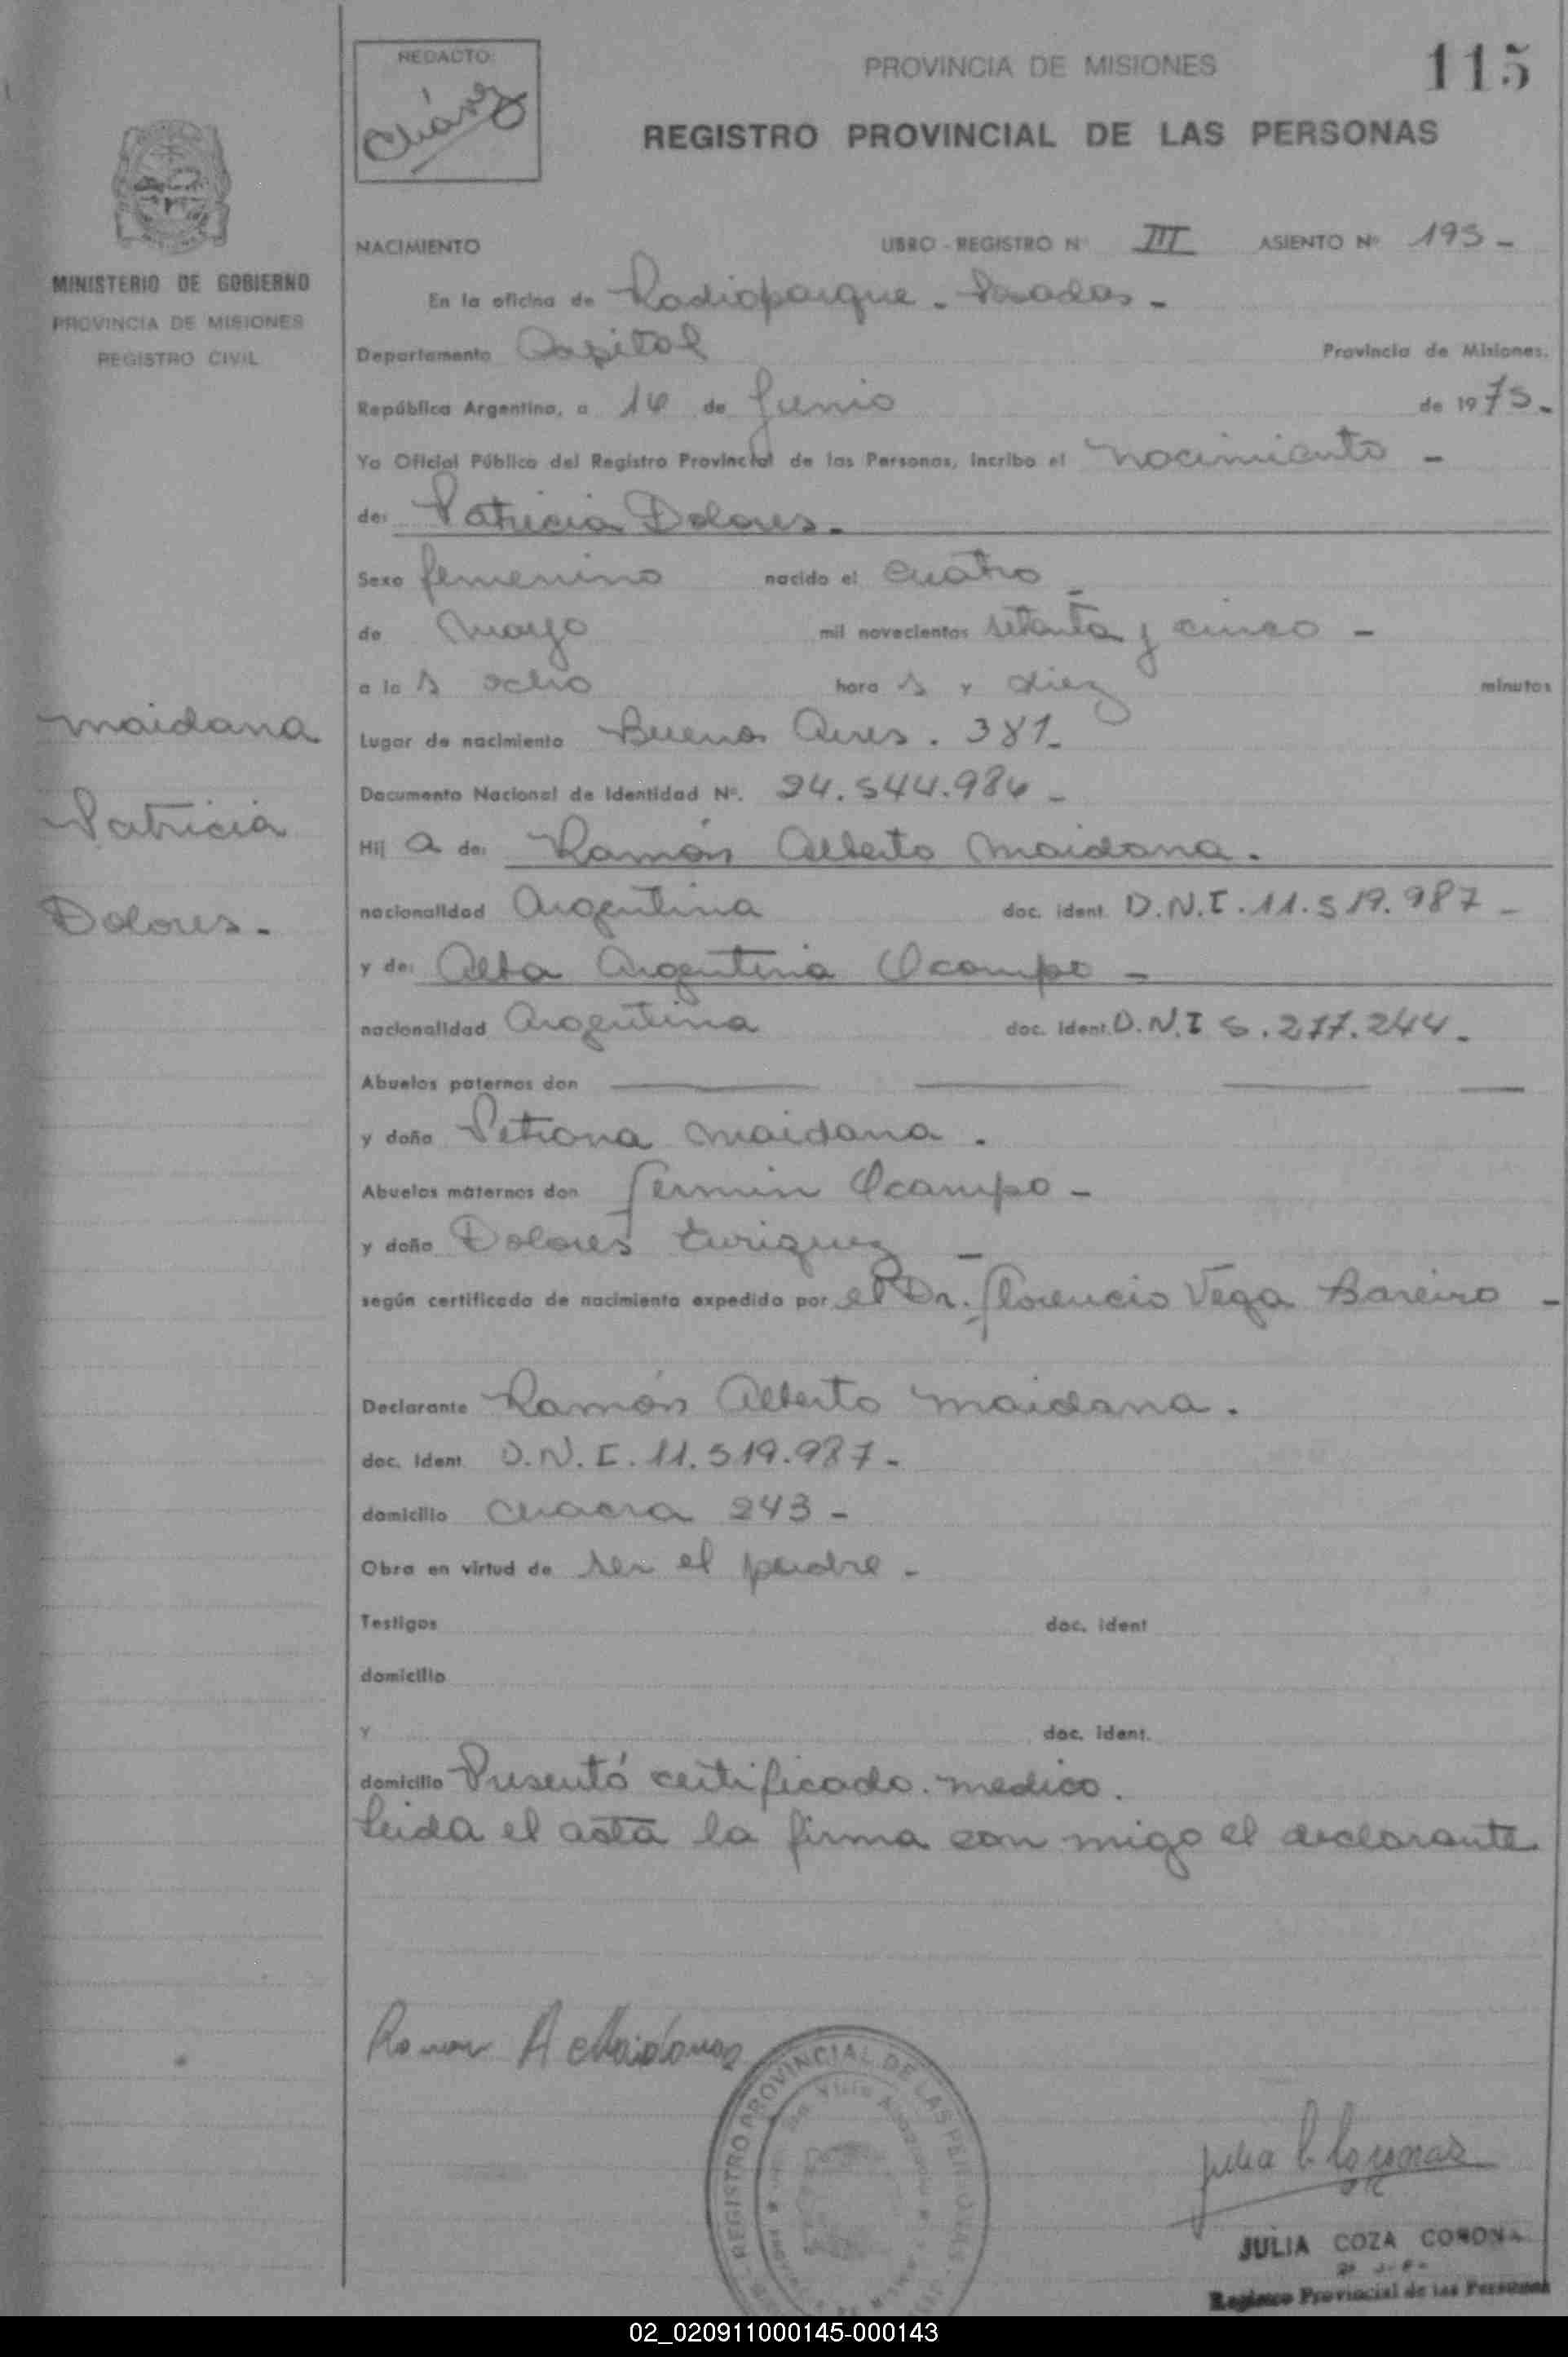 REDACTO:
Chávez
PROVINCIA DE MISIONES
115
REGISTRO PROVINCIAL DE LAS PERSONAS
MINISTERIO DE GOBIERNO
PROVINCIA DE MISIONES
REGISTRO CIVIL
NACIMIENTO LIBRO - REGISTRO Nº III ASIENTO Nº 195 -
En la oficina de Radioparque - Posadas -
Departamento Capital Provincia de Misiones.
República Argentina, a 16 de Junio de 1975 -
Yo Oficial Público del Registro Provincial de las Personas, incribo el nacimiento -
de: Patricia Dolores -
Sexo femenino nacido el cuatro -
de mayo mil novecientos setenta y cinco -
a la s ocho hora s y diez minutos
Lugar de nacimiento Buenos Aires . 381 -
Documento Nacional de Identidad Nº. 24.544.986 -
Hij a de: Ramón Alberto Maidana .
nacionalidad Argentina doc. ident. D.N.I. 11.519.987 -
y de: Alba Argentina Ocampo -
nacionalidad Argentina doc. ident. D.N.I 5.277.244 -
Abuelos paternos don
y doña Petrona Maidana .
Abuelos maternos don Fermin Ocampo -
y doña Dolores Enriquez -
según certificado de nacimiento expedido por el Dr. Florencio Vega Bareiro -
Declarante Ramón Alberto Maidana .
doc. ident. D.N.I. 11.519.987 -
domicilio Chacra 243 -
Obra en virtud de ser el padre -
Testigos doc. ident
domicilio
Y doc. ident.
domicilio Presentó certificado. medico .
Leida el acta la firma con migo el declarante
Maidana
Patricia
Dolores -
Ramon A Maidana
REGISTRO PROVINCIAL DE LAS PERSONAS
JULIA COZA CORONA
Registro Provincial de las Personas
02_020911000145-000143